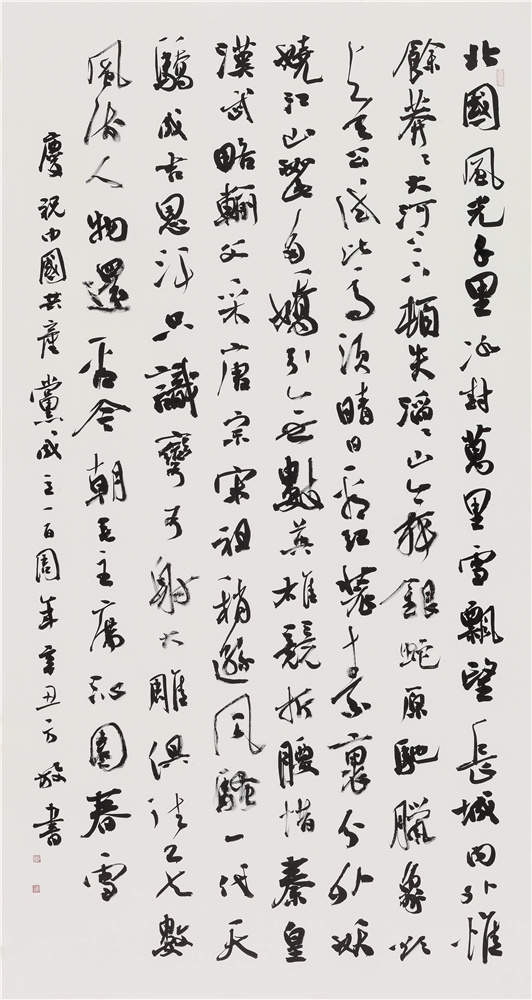 北國風光千里冰封萬里雪飄望長城内外惟
餘莽〻大河上下頓失滔〻山舞銀蛇原馳臘象欲
與天公試比高須晴日看紅裝素裹分外妖
嬈江山如此多嬌引無數英雄競折腰惜秦皇
漢武略輸文采唐宗宋祖稍遜風騷一代天
驕成吉思汗只識彎弓射大雕俱往矣數
風流人物還看今朝毛主席沁園春雪
慶祝中國共產黨成立一百周年辛丑方書